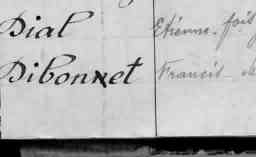 Dial Etienne. fois
Dibonnet Francis